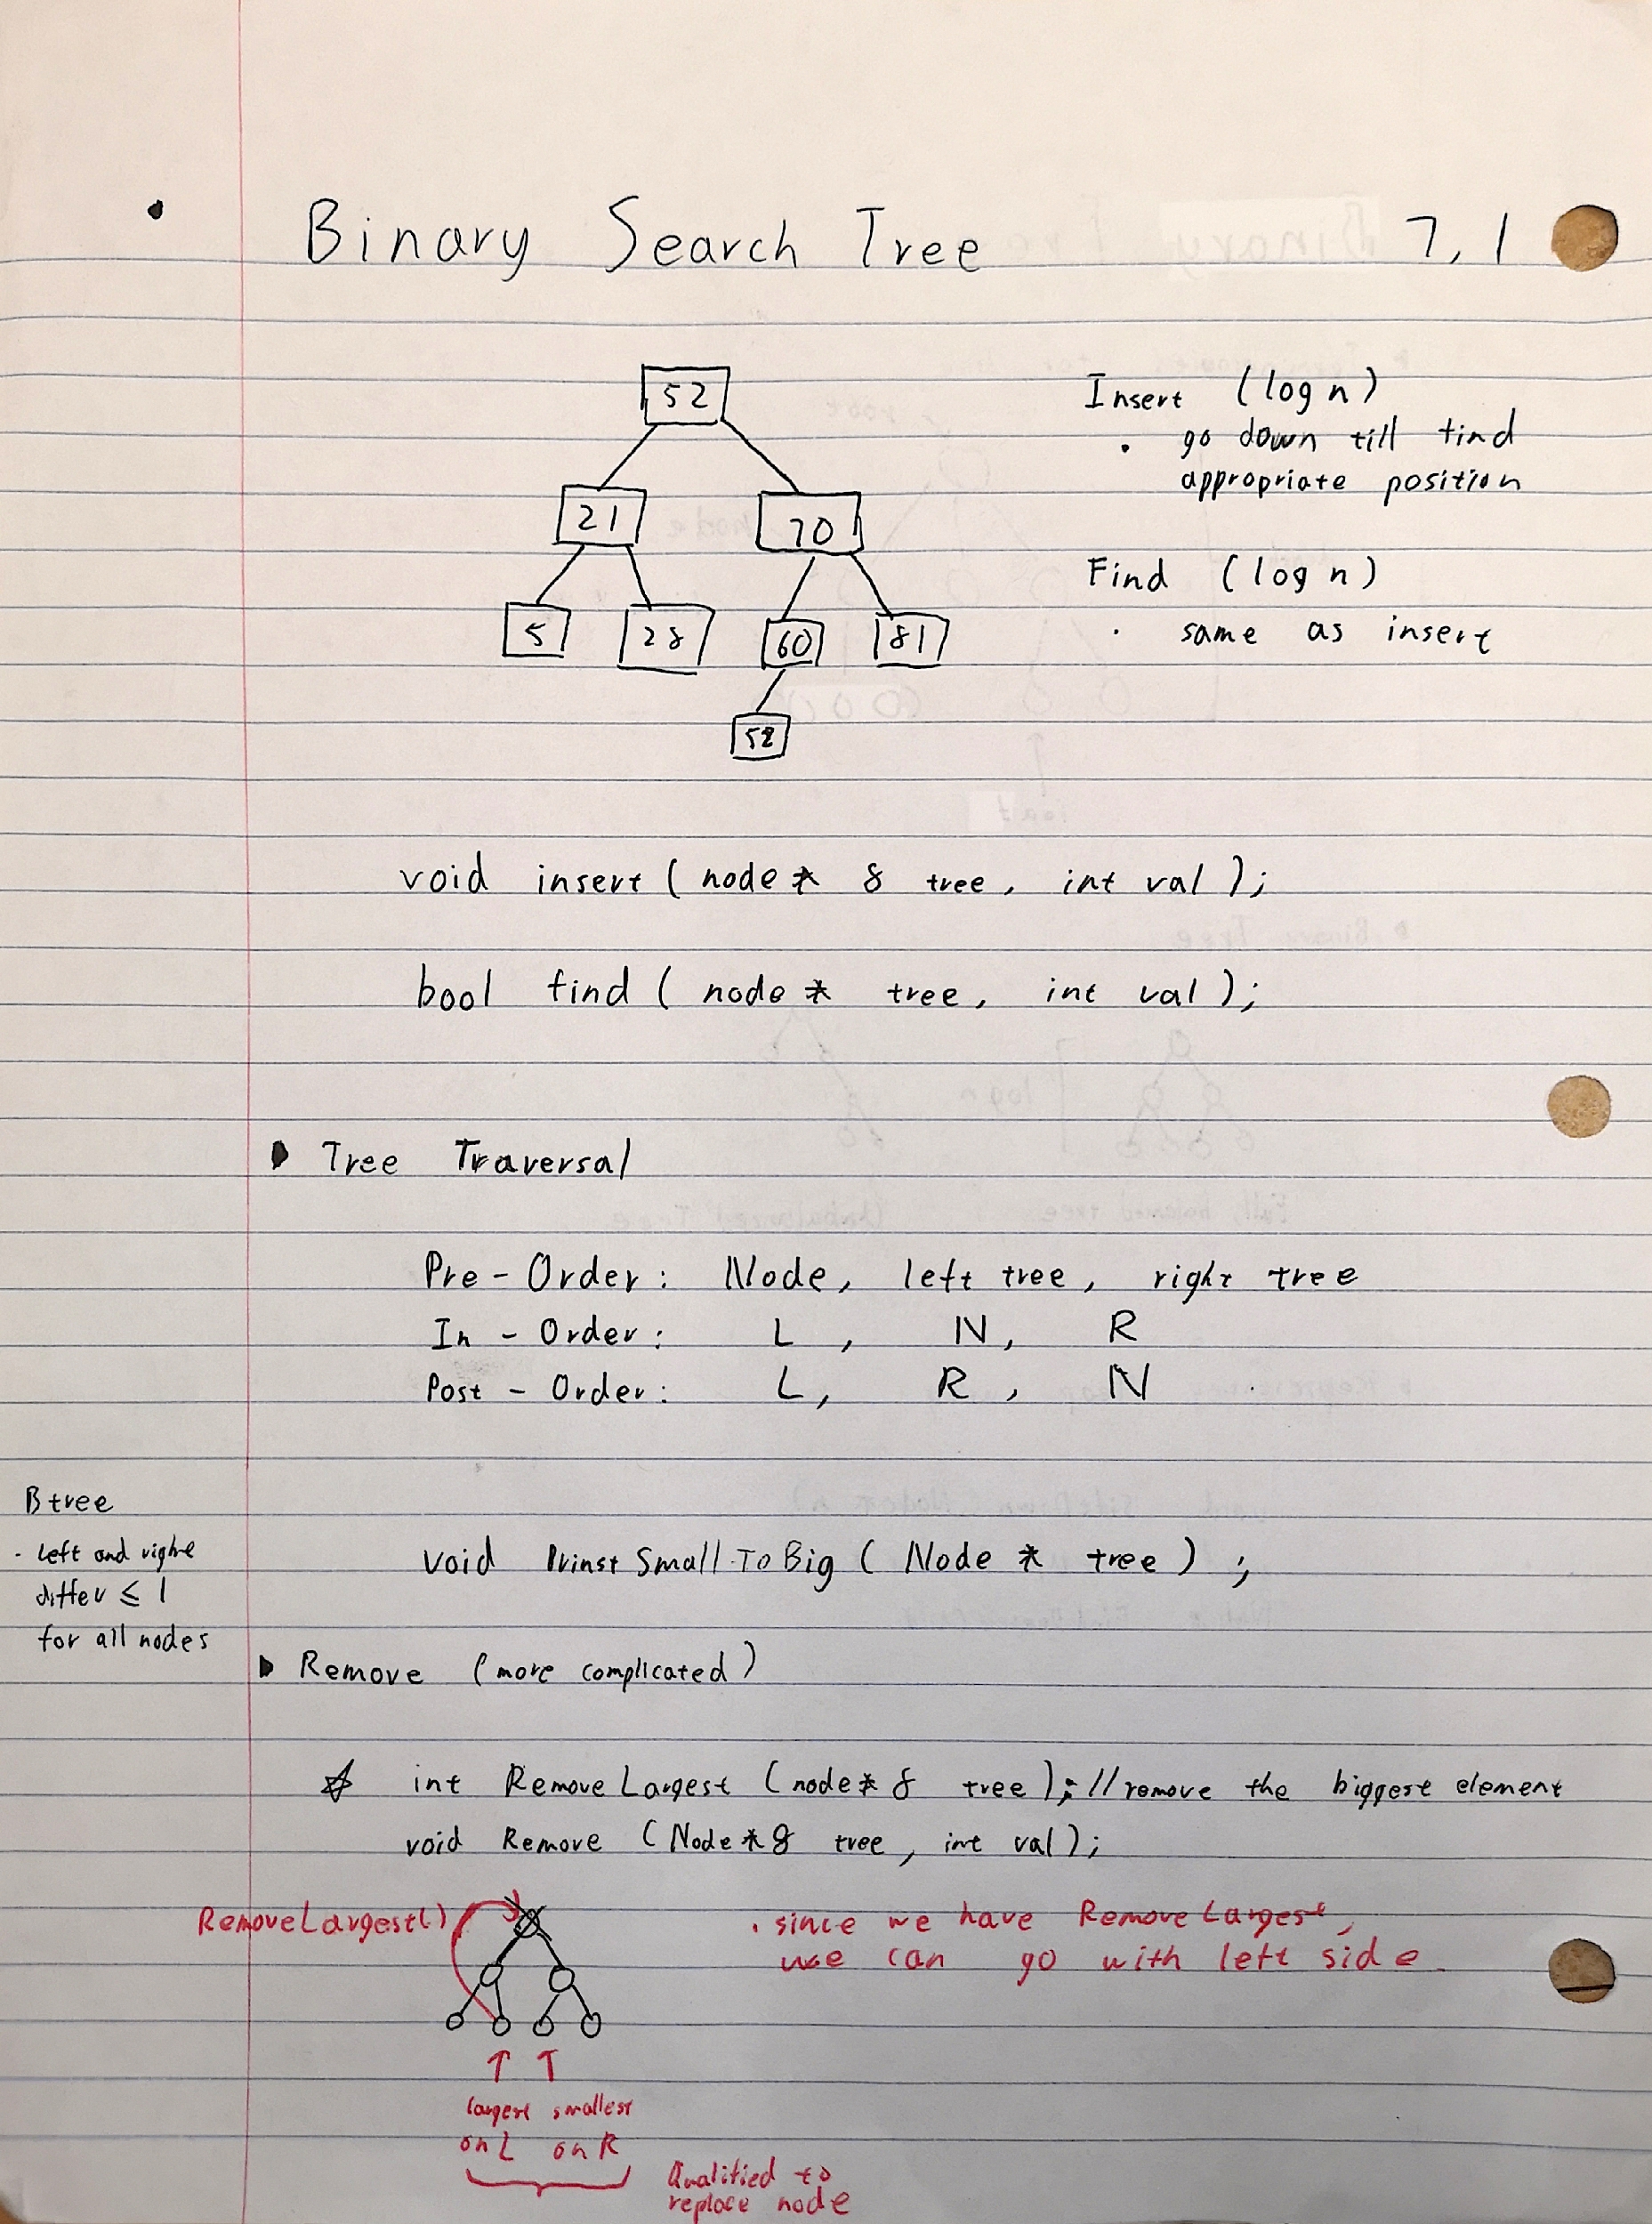 Binary Search Tree 7,1
52
21 70
5 28 60 81
Insert (log n)
· go down till find
appropriate position
Find (log n)
· same as insert
void insert ( node * & tree, int val );
bool find ( node * tree, int val );
Tree Traversal
Pre-Order: Node, left tree, right tree
In-Order: L, N, R
Post-Order: L, R, N
Btree
- Left and right
differ ≤ 1
for all nodes
void SmallToBig ( Node * tree ) ;
Remove (more complicated)
☆ int RemoveLargest (node* & tree); //remove the biggest element
void Remove (Node*& tree, int val);
RemoveLargest()
· since we have RemoveLargest,
we can go with left side.
↑ ↑
largest smallest
on L on R
Qualified to
replace node